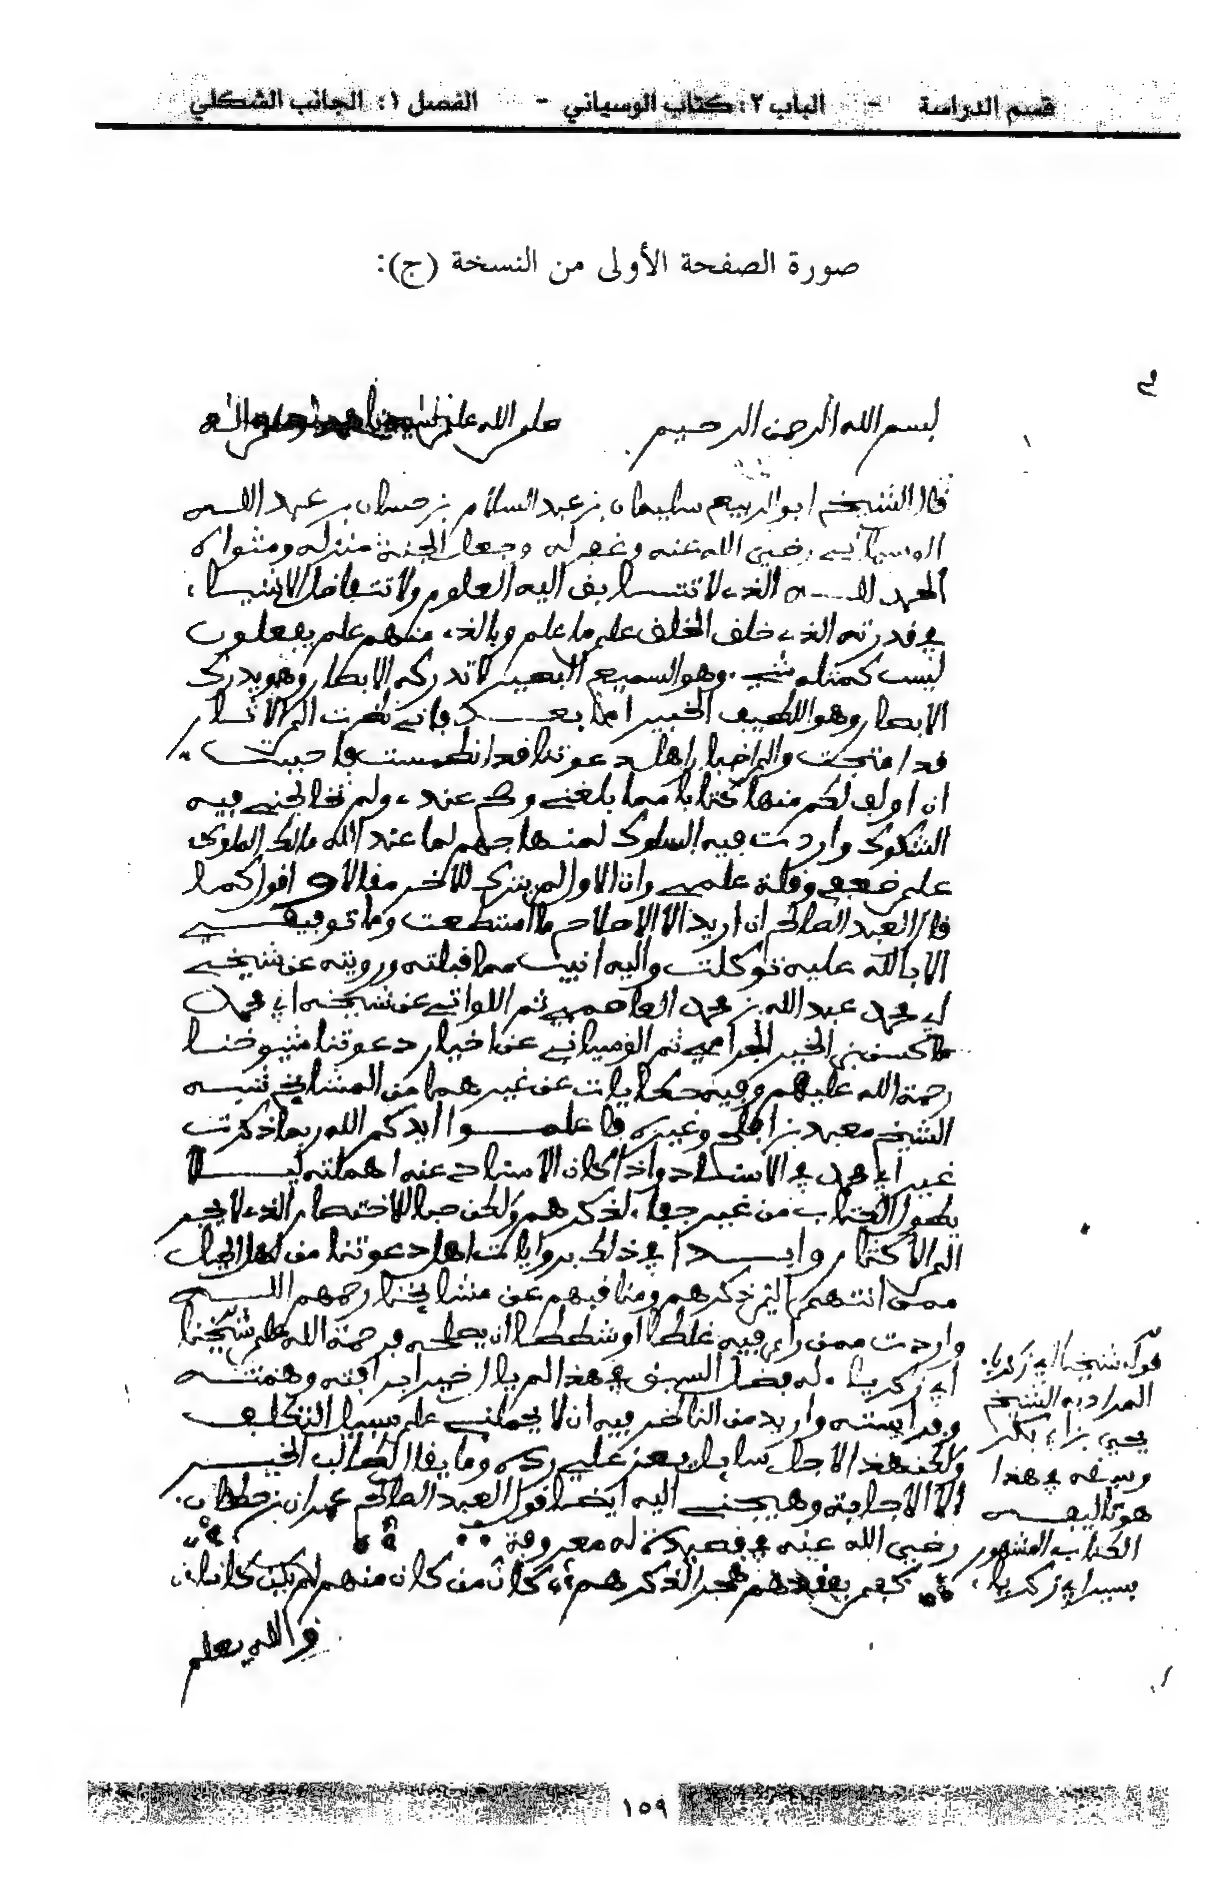 قسم الدراسة - الباب ٢: كتاب الوسياني - الفصل ١: الجانب الشكلي
صورة الصفحة الأولى من النسخة (ج):
بسم الله الرحمن الرحيم صلى الله على
قال الشيخ ابو الربيع سليمان بن عبد السلام بن حسان بن عبد الله
الوسياني رضي الله عنه وغفر له وجعل الجنة منزله ومثواه
الحمد لله الذي لا تتسابق اليه العلوم ولا تتفاضل الاشياء
في قدرته الذي خلق الخلق على ما علم وبالذي منهم علم يفعلون
ليس كمثله شيء وهو السميع البصير لا تدركه الابصار وهو يدرك
الابصار وهو اللطيف الخبير اما بعد فاني نظرت الى الآثار
قد امتحت والى اخبار اهل دعوتنا قد انطمست فاحببت
ان اولف لكم منها كتابا مما بلغني وصح عندي ولم تخالجني فيه
الشكوك واردت فيه السلوك لمنهاجهم لما عند الله مالك الملوك
على ضعفي وقلة علمي وان الاول لم يترك للآخر مقالا واقول كما
قال العبد الصالح ان اريد الا الاصلاح ما استطعت وما توفيقي
الا بالله عليه توكلت واليه انيب مما قبلته ورويته عن شيخي
ابي محمد عبد الله بن محمد العاصمي ثم اللواتي عن شيخه ابي محمد
ماكسن بن الخير الجرامي ثم الوسياني عن اخبار دعوتنا شيوخنا
رحمة الله عليهم وفيه حكايات عن غيرهما من المشايخ شبه
الشيخ معبد بن افلح وغيره فاعلموا ايدكم الله ربما ذكرت
غير ابي محمد في الاسناد واذا كان الاسناد عنه اهملته ليلا
يطول الكتاب من غير جفاء لذكرهم ولكن حبا للاختصار الذي لا يجر
الى الاكثار وابدا في ذلك بروايات اهل دعوتنا من اهل الجبل
ممن انتهى الينا ذكرهم ومناقبهم عن مشايخنا رحمهم الله
واردت ممن راى فيه غلطا او شططا ان يصلحه فرحمة الله على شيخنا
ابي زكرياء له فضل السبق في هذا
واريد من الناظر فيه ان لا يحملني على سبيل التكلف
الا الاجابة وهيجني اليه ايضا قول العبد الصالح
رضي الله عنه في قصيدة له معروفة
كفى بفقدهم هجر الذكرهم كان من كان منهم لم يكن كانا
والله يعلم
قوله شيخنا ابي زكرياء
المراد به الشيخ
يحيى بن ابي بكر
وسبقه في هذا
هو تاليفه
الكتاب المشهور
بسير ابي زكرياء
١٥٩